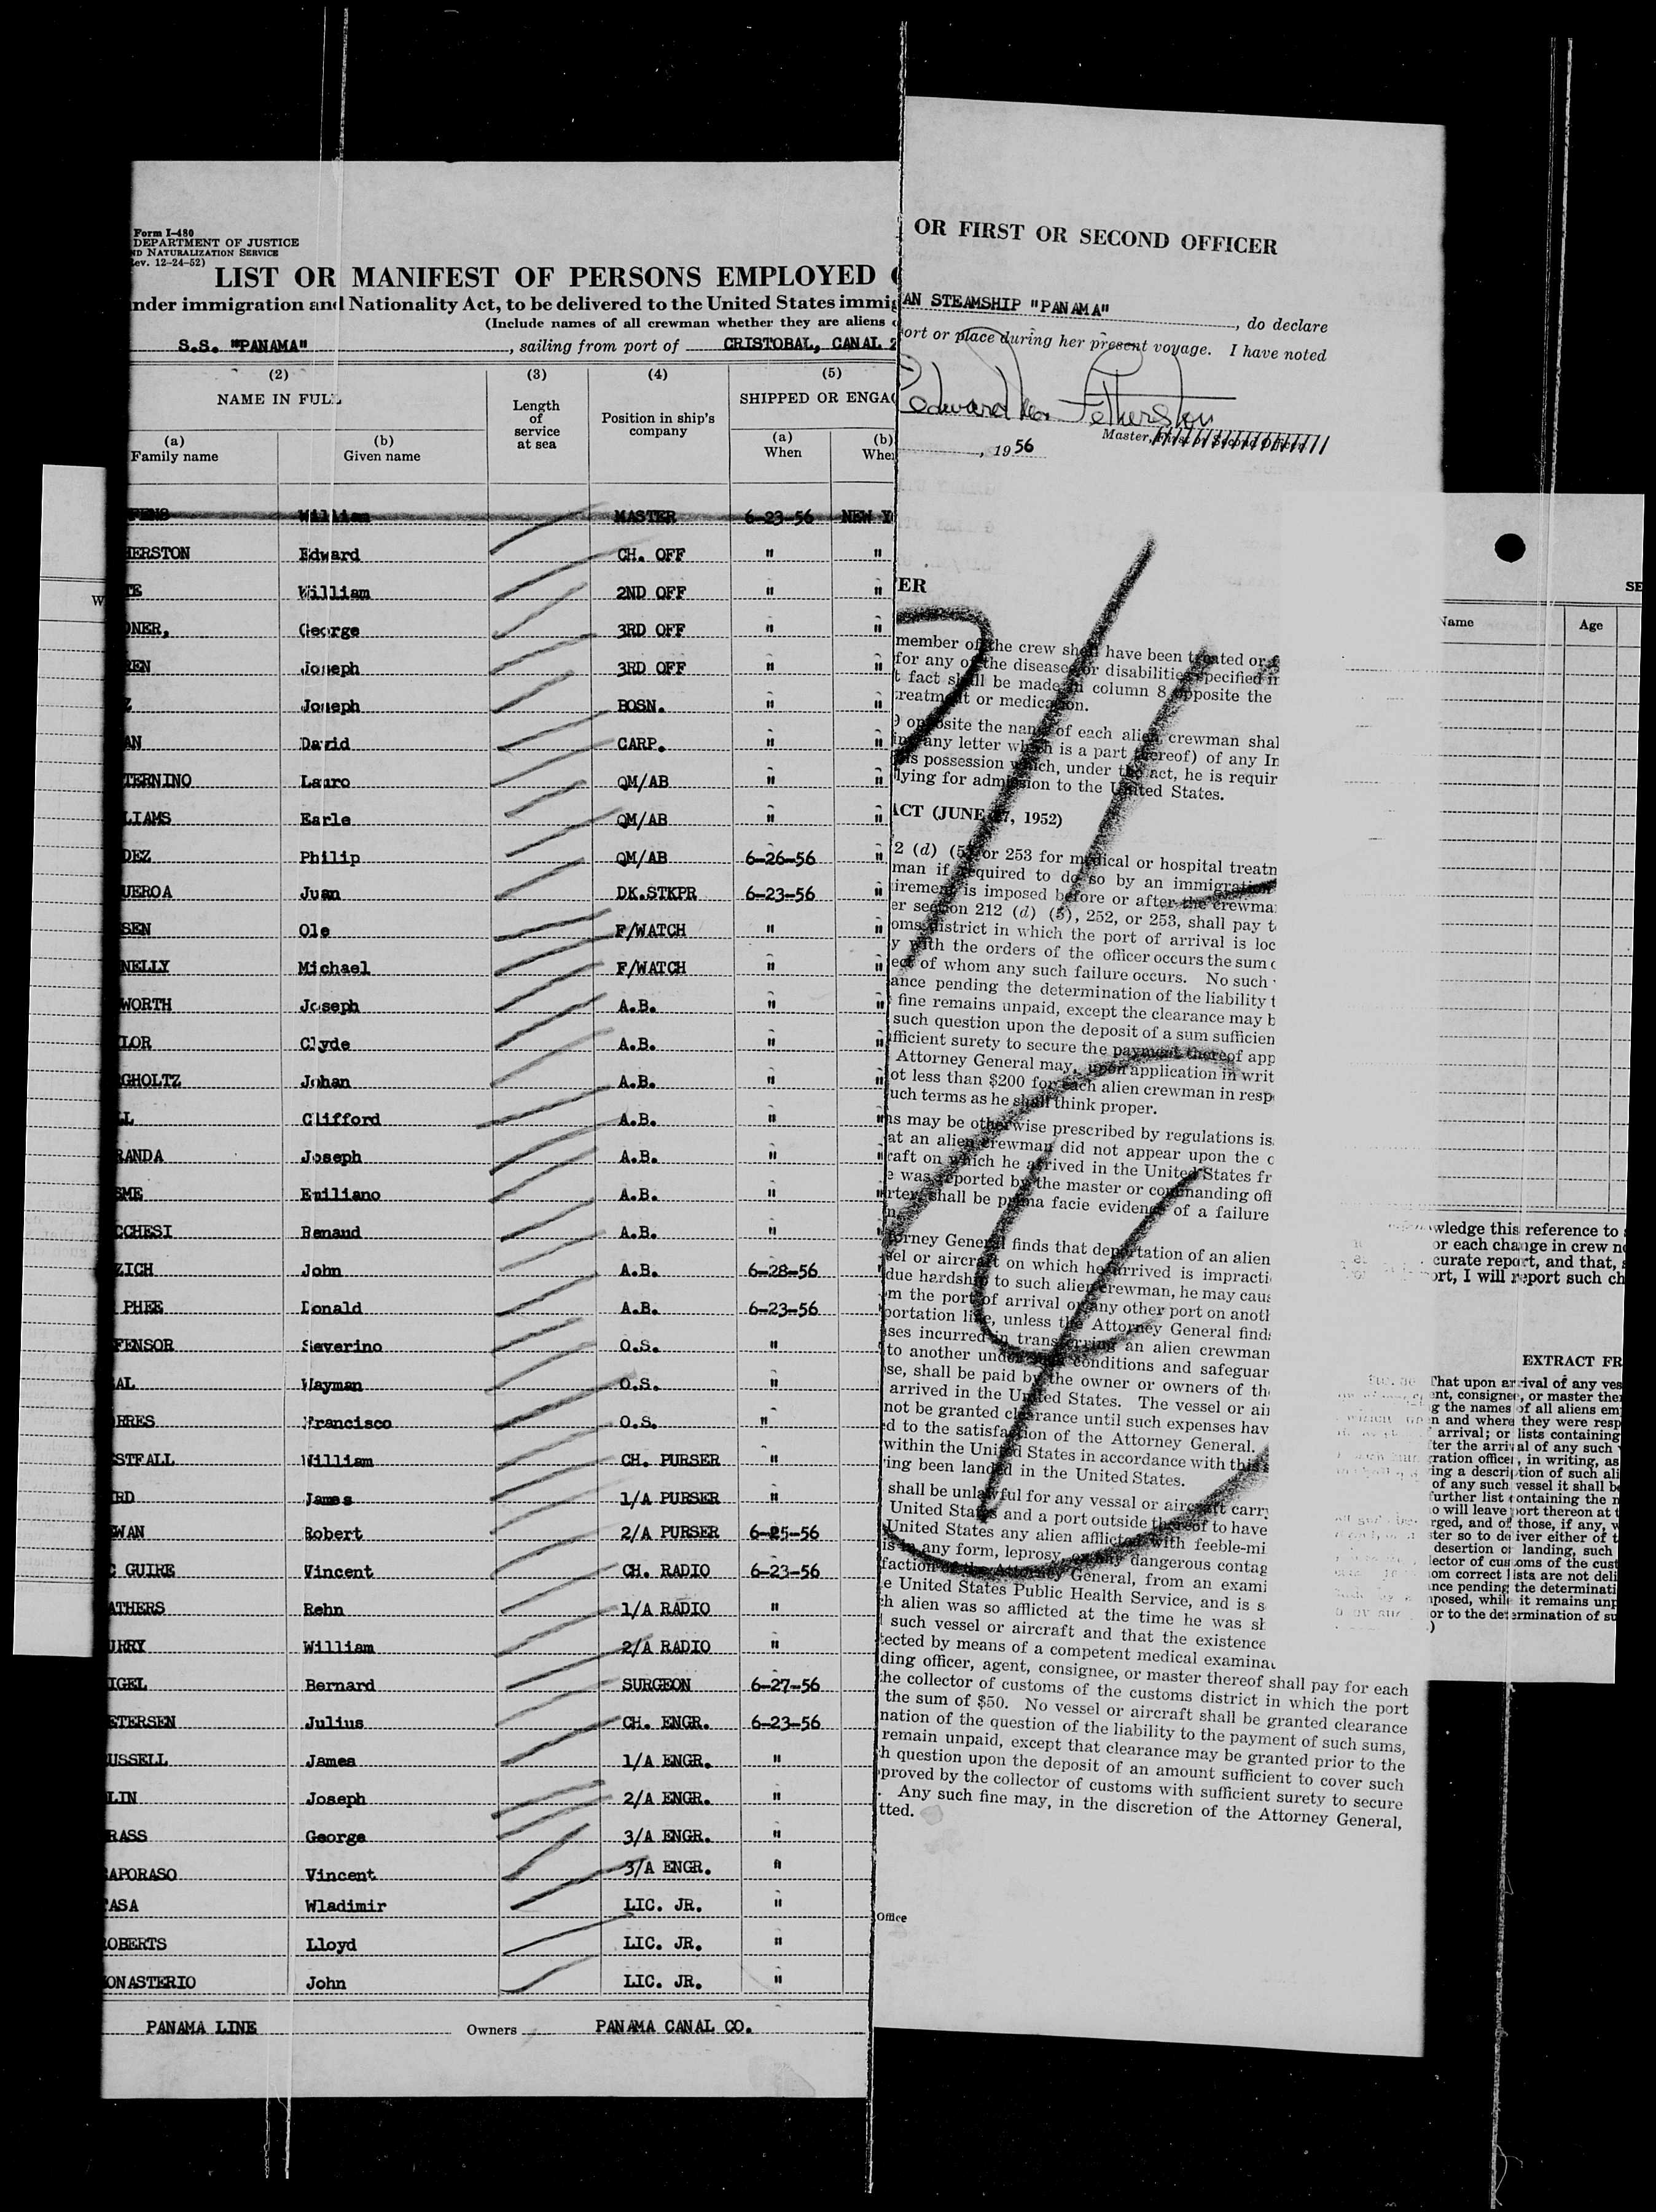 Form I-480
DEPARTMENT OF JUSTICE
ND NATURALIZATION SERVICE
ev. 12-24-52)
LIST OR MANIFEST OF PERSONS EMPLOYED
nder immigration and Nationality Act, to be delivered to the United States immig
(Include names of all crewman whether they are aliens
S.S. "PANAMA", sailing from port of CRISTOBAL, CANAL
(2) (3) (4) (5)
NAME IN FULL Length of service at sea Position in ship's company SHIPPED OR ENGA
(a) Family name (b) Given name (a) When (b) Whe
William MASTER 6-23-56 NEW Y
HERSTON Edward CH. OFF " "
TE William 2ND OFF " "
ONER, George 3RD OFF " "
EN Joseph 3RD OFF " "
Z Joseph BOSN. " "
AN David CARP. " "
TERNINO Lauro QM/AB " "
LIAMS Earle QM/AB " "
DEZ Philip QM/AB 6-26-56 "
UEROA Juan DK.STKPR 6-23-56 "
SEN Ole F/WATCH " "
NELLY Michael F/WATCH " "
WORTH Joseph A.B. " "
LOR Clyde A.B. " "
GHOLTZ Johan A.B. " "
LL Clifford A.B. " "
RANDA Joseph A.B. " "
SME Emiliano A.B. " "
CCHESI Renaud A.B. " "
ZICH John A.B. 6-28-56
PHEE Donald A.B. 6-23-56
FENSOR Severino O.S. "
AL Wayman O.S. "
RRES Francisco O.S. "
STFALL William CH. PURSER "
RD James 1/A PURSER "
WAN Robert 2/A PURSER 6-25-56
C GUIRE Vincent CH. RADIO 6-23-56
ATHERS Rehn 1/A RADIO "
URRY William 2/A RADIO "
IGEL Bernard SURGEON 6-27-56
ETERSEN Julius CH. ENGR. 6-23-56
USSELL James 1/A ENGR. "
LIN Joseph 2/A ENGR. "
RASS George 3/A ENGR. "
APORASO Vincent 3/A ENGR. "
ASA Wladimir LIC. JR. "
OBERTS Lloyd LIC. JR. "
ONASTERIO John LIC. JR. "
PANAMA LINE Owners PANAMA CANAL CO.
OR FIRST OR SECOND OFFICER
AN STEAMSHIP "PANAMA", do declare
ort or place during her present voyage. I have noted
Edward Fetherston
Master, First or Second Officer
, 1956
ER
member of the crew shall have been treated or
for any of the diseases or disabilities specified in
t fact shall be made in column 8 opposite the
treatment or medication.
9 opposite the name of each alien crewman shal
ing any letter which is a part thereof) of any Im
his possession which, under the act, he is requir
lying for admission to the United States.
ACT (JUNE 27, 1952)
2 (d) (5) or 253 for medical or hospital treatn
man if required to do so by an immigration
irement is imposed before or after the crewma
er section 212 (d) (5), 252, or 253, shall pay t
oms district in which the port of arrival is loc
y with the orders of the officer occurs the sum o
ect of whom any such failure occurs. No such
ance pending the determination of the liability t
fine remains unpaid, except the clearance may b
such question upon the deposit of a sum sufficien
fficient surety to secure the payment thereof app
Attorney General may, upon application in writ
ot less than $200 for each alien crewman in resp
uch terms as he shall think proper.
as may be otherwise prescribed by regulations is
at an alien crewman did not appear upon the c
raft on which he arrived in the United States fr
e was reported by the master or commanding off
rter, shall be prima facie evidence of a failure
n.
orney General finds that deportation of an alien
sel or aircraft on which he arrived is impracti
due hardship to such alien crewman, he may caus
m the port of arrival or any other port on anoth
portation line, unless the Attorney General finds
ses incurred in transferring an alien crewman
to another under such conditions and safeguar
se, shall be paid by the owner or owners of th
arrived in the United States. The vessel or air
not be granted clearance until such expenses hav
d to the satisfaction of the Attorney General.
within the United States in accordance with this
ing been landed in the United States.
shall be unlawful for any vessal or aircraft carry
United States and a port outside thereof to have
United States any alien afflicted with feeble-mi
is in any form, leprosy, or any dangerous contag
faction of the Attorney General, from an exami
e United States Public Health Service, and is s
h alien was so afflicted at the time he was sh
such vessel or aircraft and that the existence
tected by means of a competent medical examina
ding officer, agent, consignee, or master thereof shall pay for each
he collector of customs of the customs district in which the port
the sum of $50. No vessel or aircraft shall be granted clearance
nation of the question of the liability to the payment of such sums,
remain unpaid, except that clearance may be granted prior to the
h question upon the deposit of an amount sufficient to cover such
proved by the collector of customs with sufficient surety to secure
. Any such fine may, in the discretion of the Attorney General,
tted.
Office
SE
Name Age
wledge this reference to
or each change in crew n
curate report, and that,
ort, I will report such ch
EXTRACT FR
That upon arrival of any ves
ent, consignee, or master the
g the names of all aliens em
n and where they were resp
arrival; or lists containing
ter the arrival of any such
ration officer, in writing, as
ing a description of such ali
of any such vessel it shall be
further list containing the n
o will leave port thereon at t
rged, and of those, if any, w
ster so to deliver either of t
desertion or landing, such
lector of customs of the cust
om correct lists are not deli
nce pending the determinati
mposed, while it remains unp
or to the determination of su
)